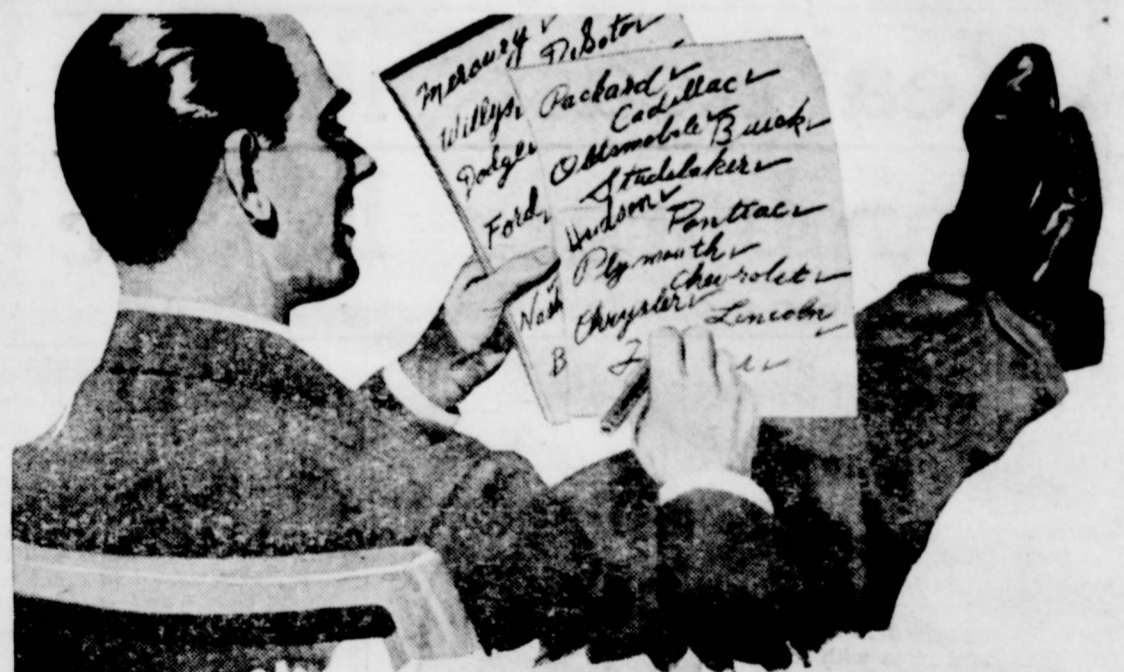 Mercury
DeSoto
Willys
Dodge
Ford
Packard
Cadillac
Oldsmobile
Buick
Studebaker
Hudson
Pontiac
Plymouth
Chevrolet
Chrysler
Lincoln